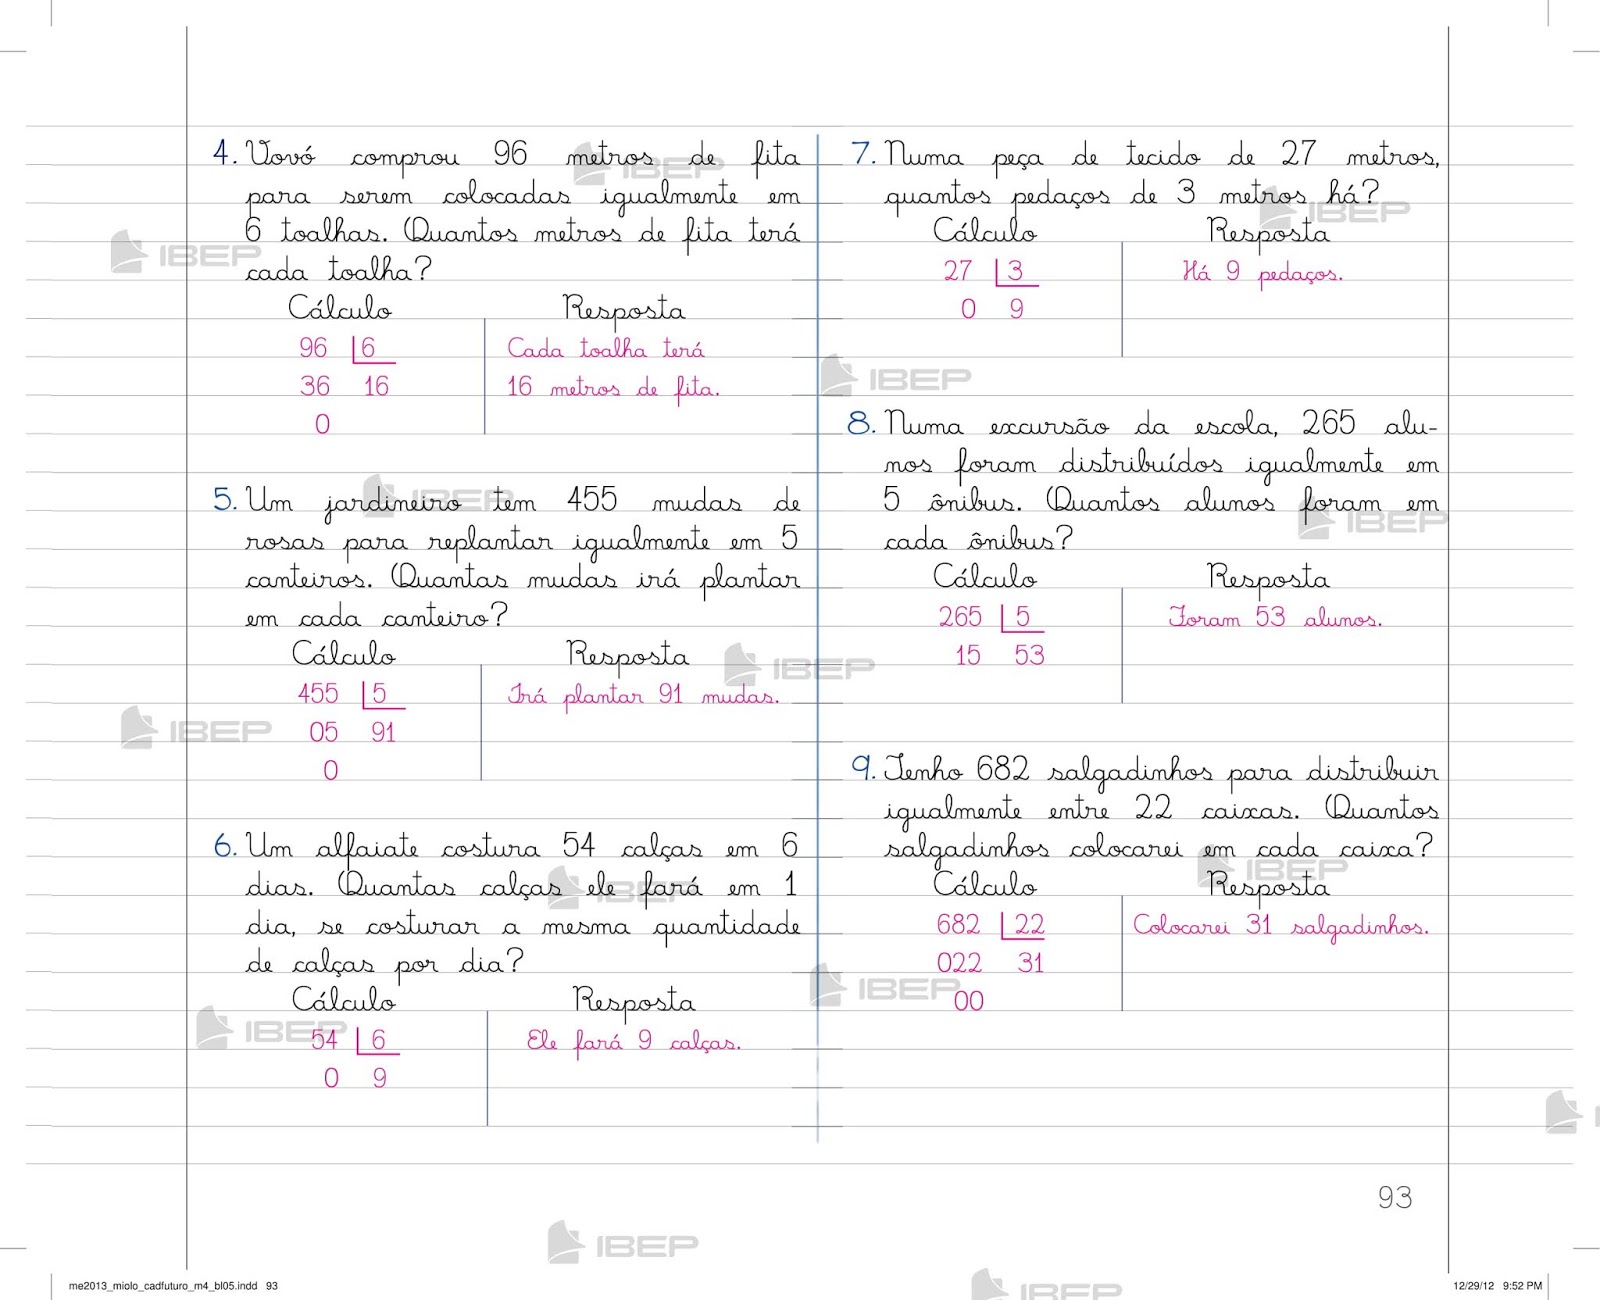 4. Vovó comprou 96 metros de fita
para serem colocadas igualmente em
6 toalhas. Quantos metros de fita terá
cada toalha?
Cálculo Resposta
96 6 Cada toalha terá
36 16 16 metros de fita.
0
5. Um jardineiro tem 455 mudas de
rosas para replantar igualmente em 5
canteiros. Quantas mudas irá plantar
em cada canteiro?
Cálculo Resposta
455 5 Irá plantar 91 mudas.
05 91
0
6. Um alfaiate costura 54 calças em 6
dias. Quantas calças ele fará em 1
dia, se costurar a mesma quantidade
de calças por dia?
Cálculo Resposta
54 6 Ele fará 9 calças.
0 9
7. Numa peça de tecido de 27 metros,
quantos pedaços de 3 metros há?
Cálculo Resposta
27 3 Há 9 pedaços.
0 9
8. Numa excursão da escola, 265 alu-
nos foram distribuídos igualmente em
5 ônibus. Quantos alunos foram em
cada ônibus?
Cálculo Resposta
265 5 Foram 53 alunos.
15 53
9. Tenho 682 salgadinhos para distribuir
igualmente entre 22 caixas. Quantos
salgadinhos colocarei em cada caixa?
Cálculo Resposta
682 22 Colocarei 31 salgadinhos.
022 31
00
93
IBEP
IBEP
IBEP
IBEP
IBEP
IBEP
IBEP
IBEP
IBEP
IBEP
IBEP
IBEP
IBEP
IBEP
me2013_miolo_cadfuturo_m4_bl05.indd 93 12/29/12 9:52 PM